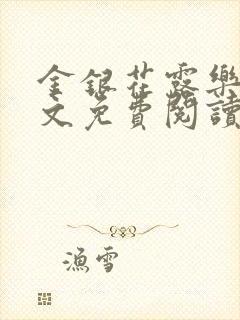 金銀花露樂
文免費閱讀
漁雪